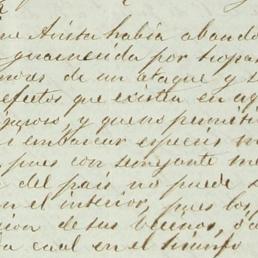 ue Arista había abando
guarnecida por tropas
de un ataque y s
efectos que existen en
y que no permiti
embarcar especies
pues con semejante me
del país no puede s
en el interior, pues los
de sus vecinos, ó a
a cual en el triunfo